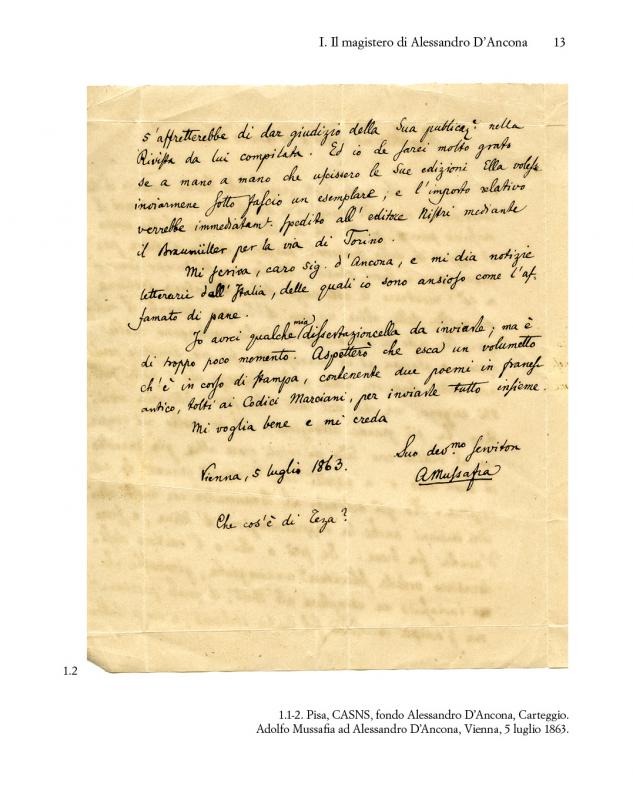 I. Il magistero di Alessandro D'Ancona 13
s'affretterebbe di dar giudizio della Sua publicaz.e nella
Rivista da lui compilata. Ed io Le sarei molto grato
se a mano a mano che uscissero le Sue edizioni Ella volesse
inviarmene sotto fascio un esemplare; e l'importo relativo
verrebbe immediatam. spedito all'editore Nistri mediante
il Braumüller per la via di Torino.
Mi scriva, caro Sig. d'Ancona, e mi dia notizie
letterarie dall'Italia, delle quali io sono ansioso come l'af-
famato di pane.
Io avrei qualche mia dissertazioncella da inviarle; ma è
di troppo poco momento. Aspetterò che esca un volumetto
ch'è in corso di stampa, contenente due poemi in franc.
antico, tolti ai Codici Marciani, per inviarle tutto insieme.
Mi voglia bene e mi creda
Suo dev.mo servitore
Vienna, 5 luglio 1863.
AMussafia
Che cos'è di Teza?
1.2
1.1-2. Pisa, CASNS, fondo Alessandro D'Ancona, Carteggio.
Adolfo Mussafia ad Alessandro D'Ancona, Vienna, 5 luglio 1863.